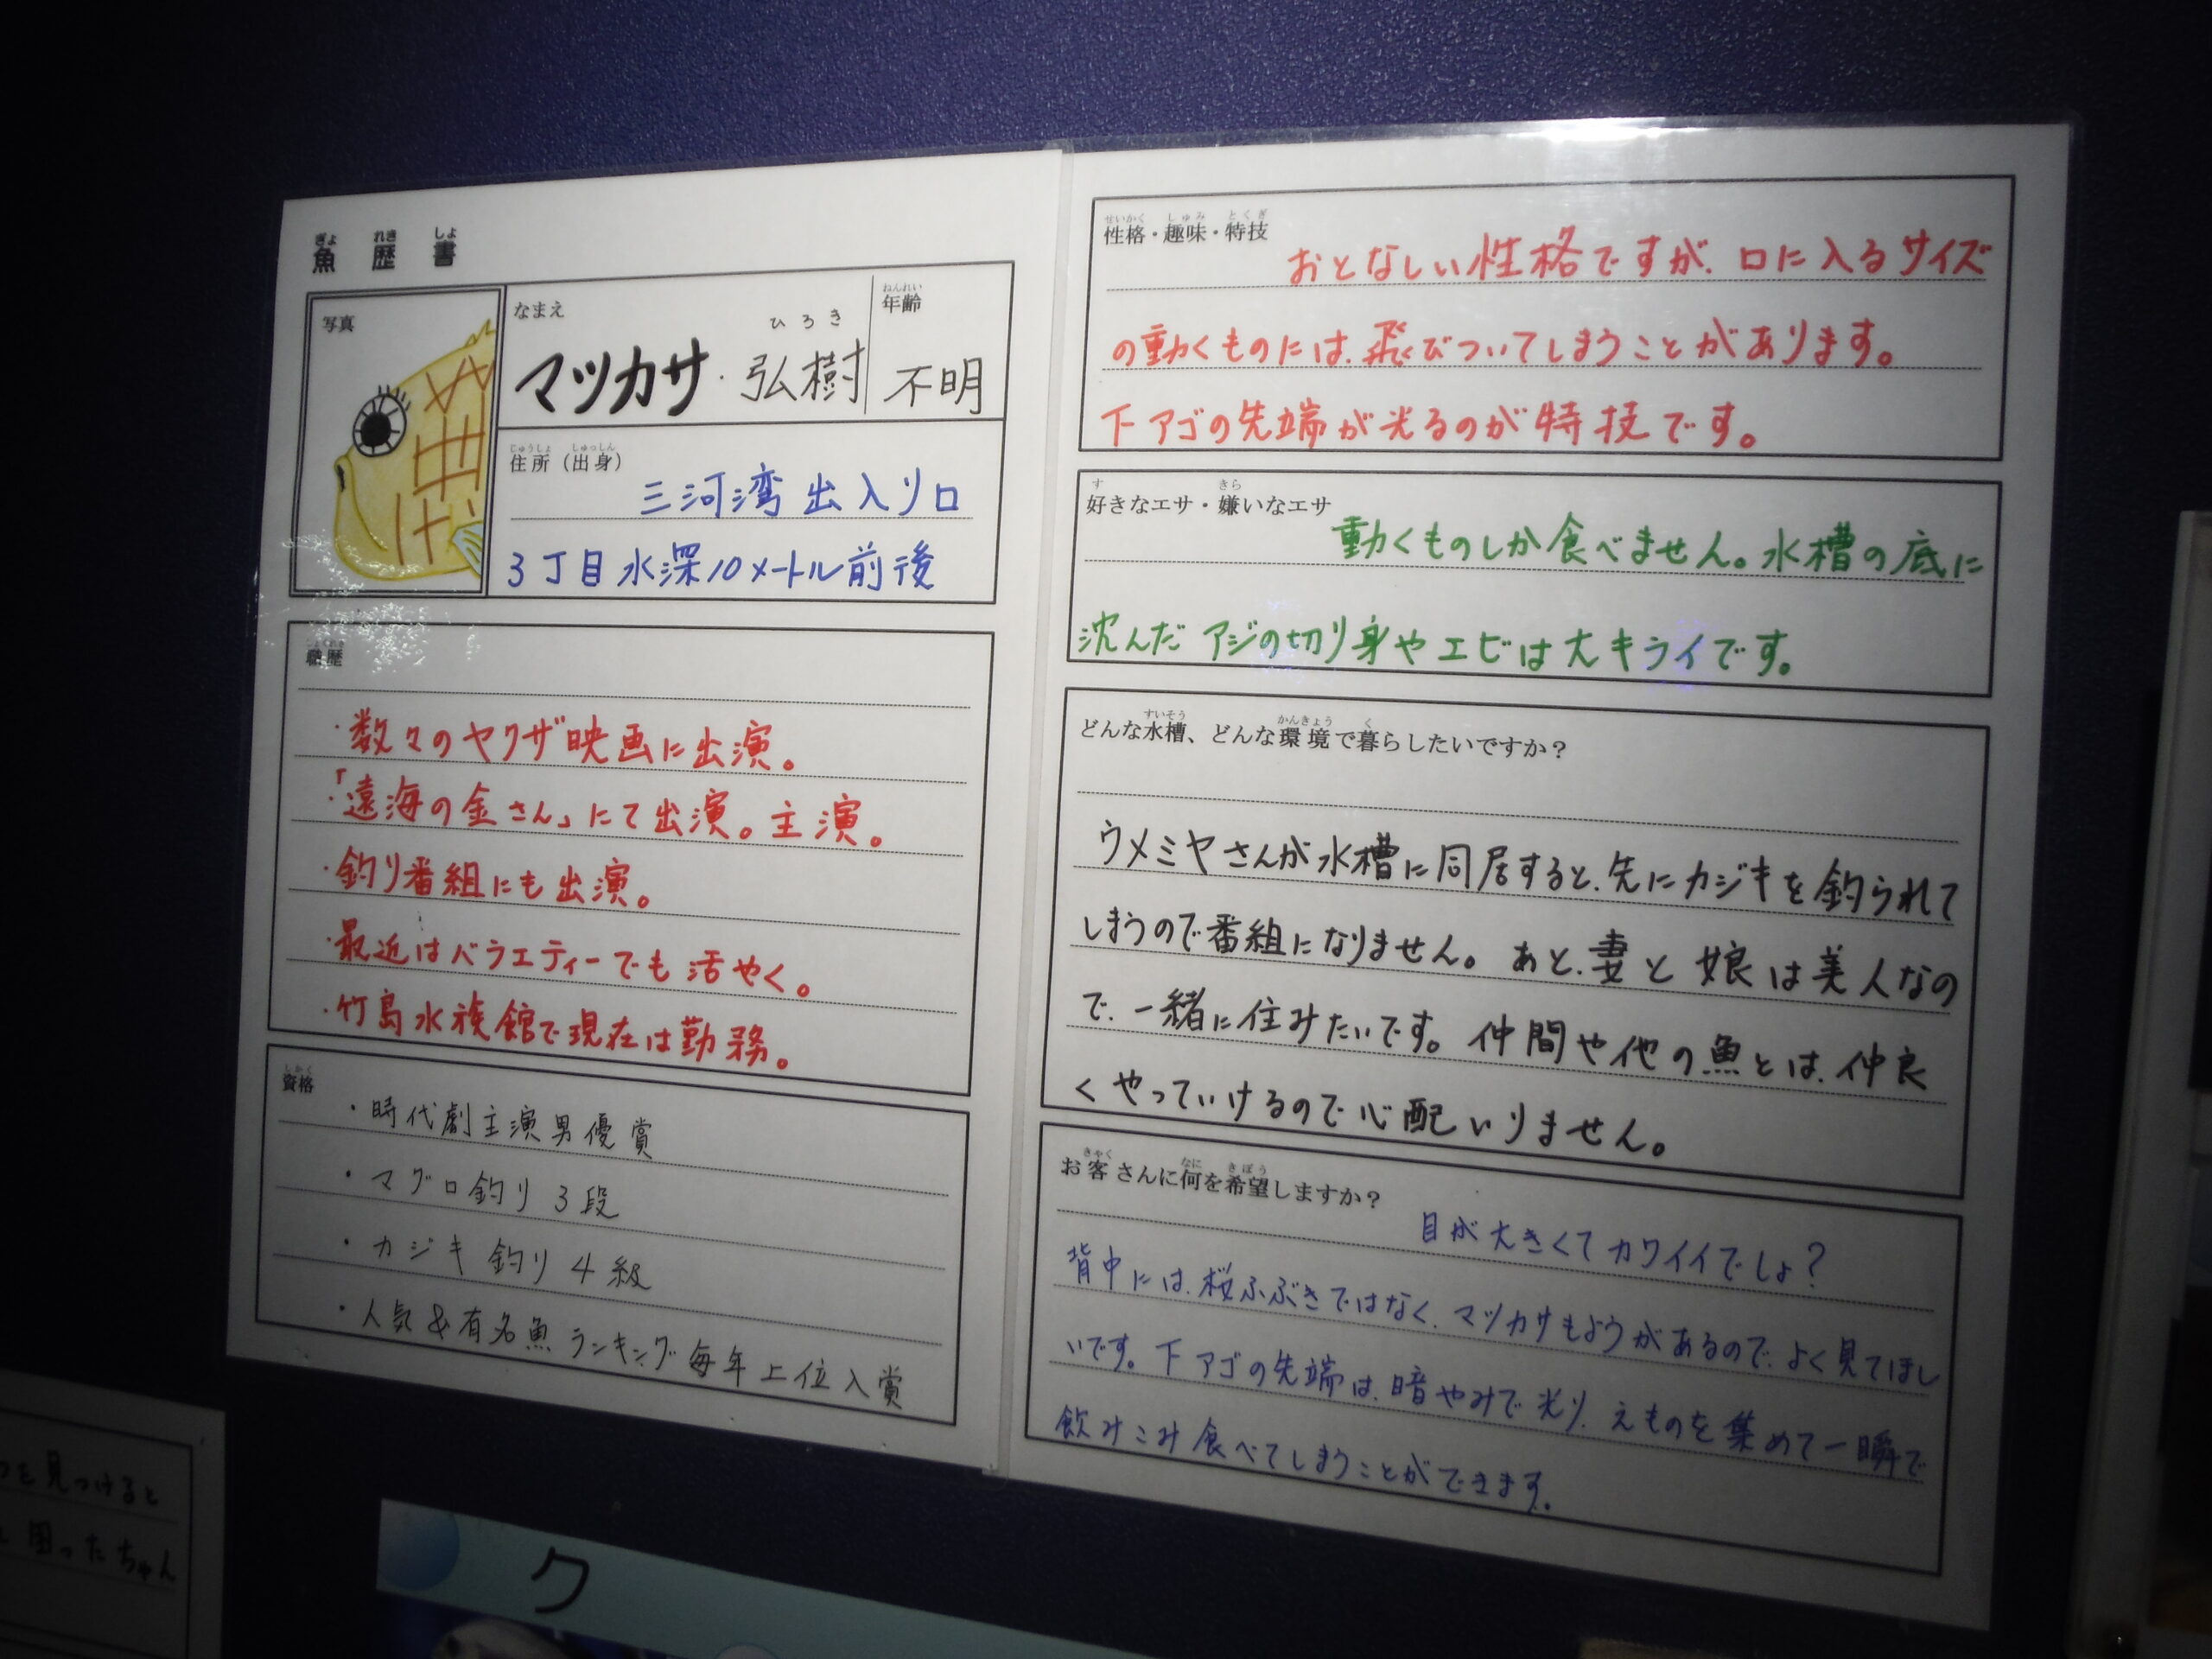 ぎょ れき しょ
魚歴書
写真
なまえ
ひろき
マツカサ・弘樹
ねんれい
年齢
不明
じゅうしょ しゅっしん
住所（出身）
三河湾出入り口
3丁目水深10メートル前後
職歴
・数々のヤクザ映画に出演。
・「遠海の金さん」にて出演。主演。
・釣り番組にも出演。
・最近はバラエティーでも活やく。
・竹島水族館で現在は勤務。
しかく
資格
・時代劇主演男優賞
・マグロ釣り3段
・カジキ釣り4級
・人気&有名魚ランキング毎年上位入賞
せいかく しゅみ とくぎ
性格・趣味・特技
おとなしい性格ですが、口に入るサイズ
の動くものには、飛びついてしまうことがあります。
下アゴの先端が光るのが特技です。
す きら
好きなエサ・嫌いなエサ
動くものしか食べません。水槽の底に
沈んだアジの切り身やエビは大キライです。
すいそう かんきょう く
どんな水槽、どんな環境で暮らしたいですか？
ウメミヤさんが水槽に同居すると、先にカジキを釣られて
しまうので番組になりません。あと、妻と娘は美人なの
で、一緒に住みたいです。仲間や他の魚とは、仲良
くやっていけるので心配いりません。
きゃく なに きぼう
お客さんに何を希望しますか？
目が大きくてカワイイでしょ？
背中には、桜ふぶきではなく、マツカサもようがあるので、よく見てほし
いです。下アゴの先端は、暗やみで光り、えものを集めて一瞬で
飲みこみ食べてしまうことができます。
を見つけると
困ったちゃん
ク